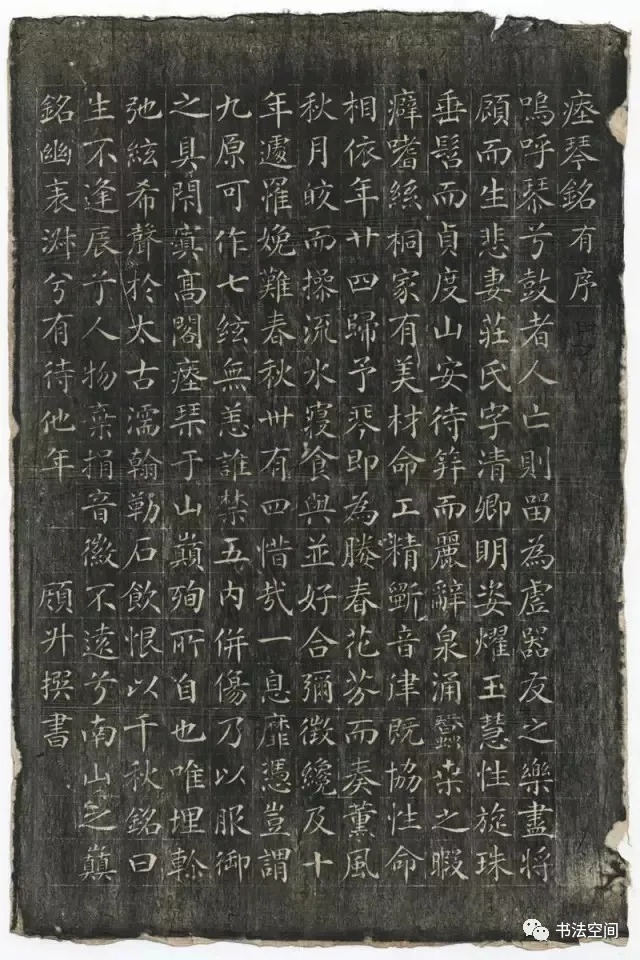 瘞琴銘有序
嗚呼琴兮鼓者人亡則畱為虛器友之樂盡將
頋而生悲妻莊氏字清卿明姿燿玉慧性旋珠
垂髫而貞度山安待筓而麗辭泉涌蠶桒之暇
癖嗜絲桐家有美材命工精斲音律既協性命
相依年廿四歸予琴即為媵春花芬而奏薰風
秋月皎而操流水寢食與並好合彌徵纔及十
年遽罹娩難春秋卅有四惜哉一息靡憑豈謂
九原可作七絃無恙誰禁五內併傷乃以服御
之具閇寘高閣瘞琹于山巔殉所自也唯埋軫
弛絃希聲於太古濡翰勒石飲恨以千秋銘曰
生不逢辰兮人物棄捐音徽不遠兮南山之巔
銘幽表淑兮有待他年 頋升撰書
书法空间